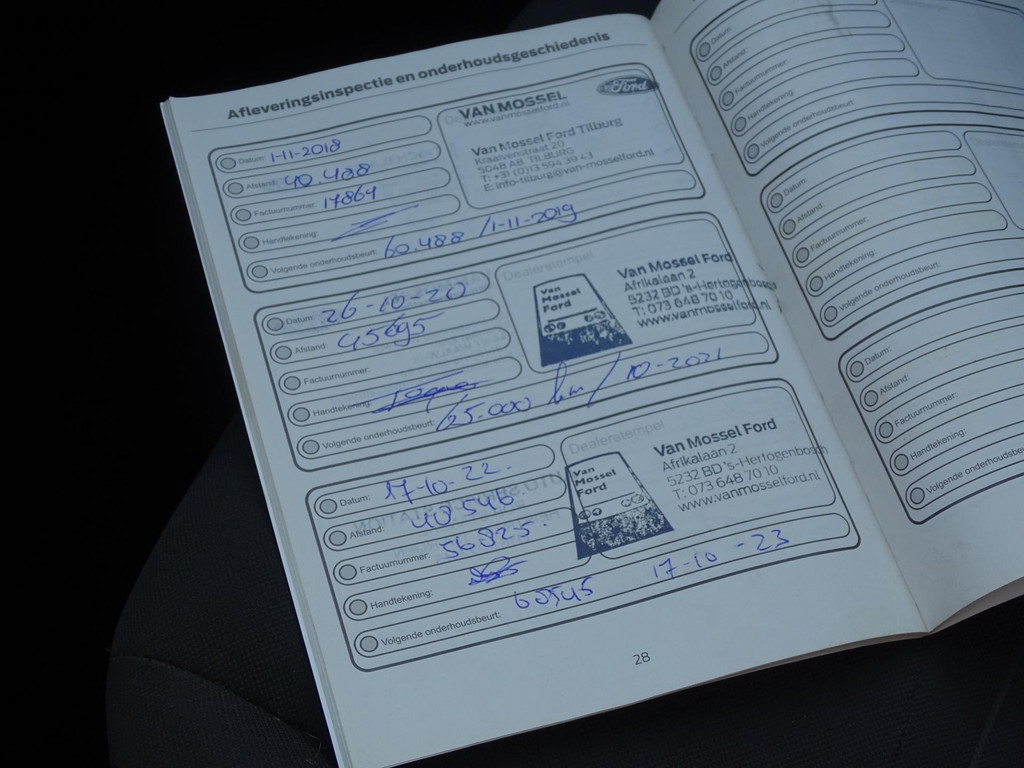 Afleveringsinspectie en onderhoudsgeschiedenis
Datum: 1-11-2018
Afstand: 40.488
Factuurnummer: 17864
Handtekening:
Volgende onderhoudsbeurt: 60.488 / 1-11-2019
VAN MOSSEL
www.vanmosselford.nl
Ford
Van Mossel Ford Tilburg
Kraaivenstraat 20
5048 AB TILBURG
T: +31 (0)13 594 39 43
E: info-tilburg@van-mosselford.nl
Datum: 26-10-20
Afstand: 45695
Factuurnummer:
Handtekening:
Volgende onderhoudsbeurt: /25.000 km/ 10-2021
Dealerstempel
Van
Mossel
Ford
Van Mossel Ford
Afrikalaan 2
5232 BD 's-Hertogenbosch
T: 073 648 70 10
www.vanmosselford.nl
Datum: 17-10-22.
Afstand: 48546
Factuurnummer: 56825.
Handtekening:
Volgende onderhoudsbeurt: 17-10-23
Dealerstempel
Van
Mossel
Ford
Van Mossel Ford
Afrikalaan 2
5232 BD 's-Hertogenbosch
T: 073 648 70 10
www.vanmosselford.nl
28
Datum:
Afstand:
Factuurnummer:
Handtekening:
Volgende onderhoudsbeurt:
Datum:
Afstand:
Factuurnummer:
Handtekening:
Volgende onderhoudsbeurt:
Datum:
Afstand:
Factuurnummer:
Handtekening:
Volgende onderhoudsbeurt: